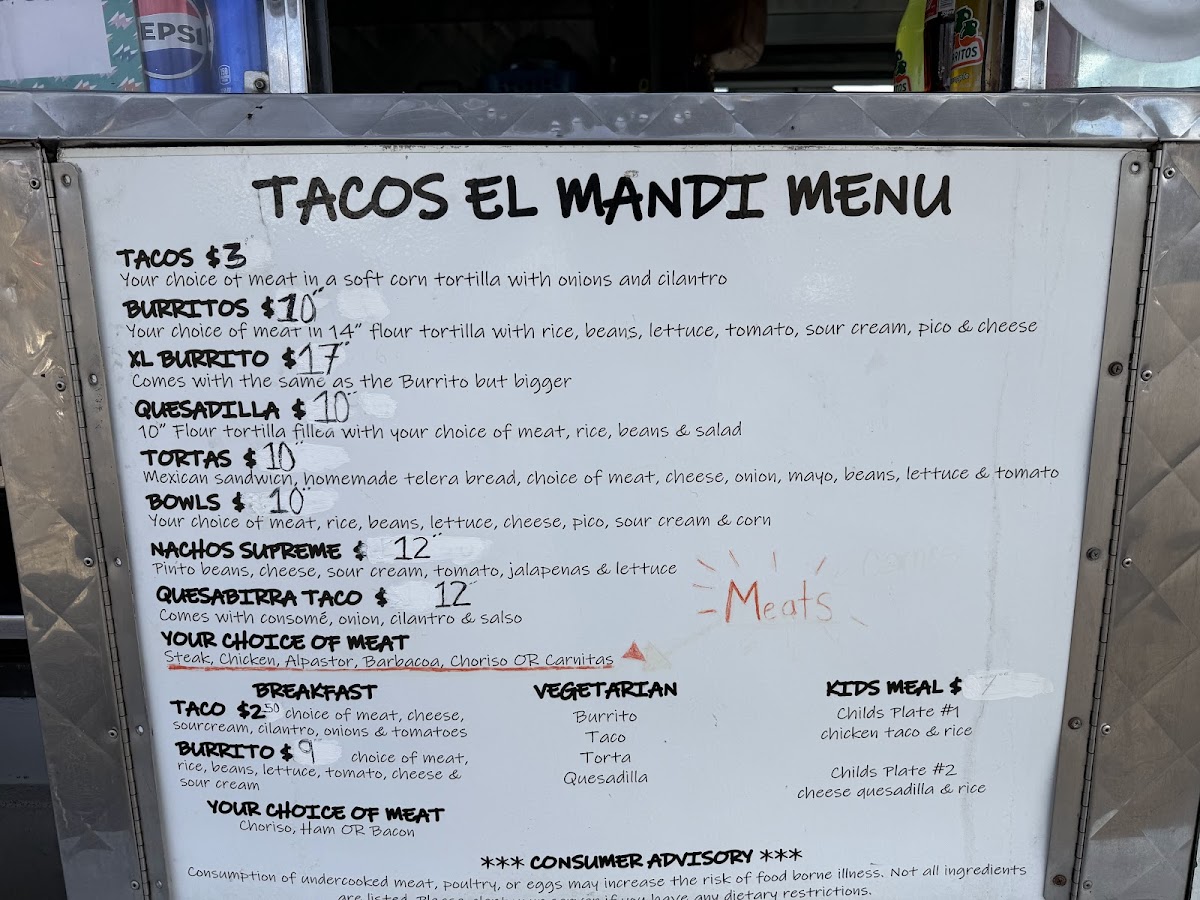 EPSI
RITOS
TACOS EL MANDI MENU
TACOS $3
Your choice of meat in a soft corn tortilla with onions and cilantro
BURRITOS $10
Your choice of meat in 14" flour tortilla with rice, beans, lettuce, tomato, sour cream, pico & cheese
XL BURRITO $17
Comes with the same as the Burrito but bigger
QUESADILLA $10
10" Flour tortilla filled with your choice of meat, rice, beans & salad
TORTAS $10
Mexican sandwich, homemade telera bread, choice of meat, cheese, onion, mayo, beans, lettuce & tomato
BOWLS $10
Your choice of meat, rice, beans, lettuce, cheese, pico, sour cream & corn
NACHOS SUPREME $12
Pinto beans, cheese, sour cream, tomato, jalapenas & lettuce
QUESABIRRA TACO $12
Comes with consomé, onion, cilantro & salso
Meats
YOUR CHOICE OF MEAT
Steak, Chicken, Alpastor, Barbacoa, Choriso OR Carnitas
BREAKFAST
TACO $2.50 choice of meat, cheese,
sourcream, cilantro, onions & tomatoes
BURRITO $9 choice of meat,
rice, beans, lettuce, tomato, cheese &
sour cream
YOUR CHOICE OF MEAT
Choriso, Ham OR Bacon
VEGETARIAN
Burrito
Taco
Torta
Quesadilla
KIDS MEAL $7
Childs Plate #1
chicken taco & rice
Childs Plate #2
cheese quesadilla & rice
*** CONSUMER ADVISORY ***
Consumption of undercooked meat, poultry, or eggs may increase the risk of food borne illness. Not all ingredients
are listed. Please if you have any dietary restrictions.